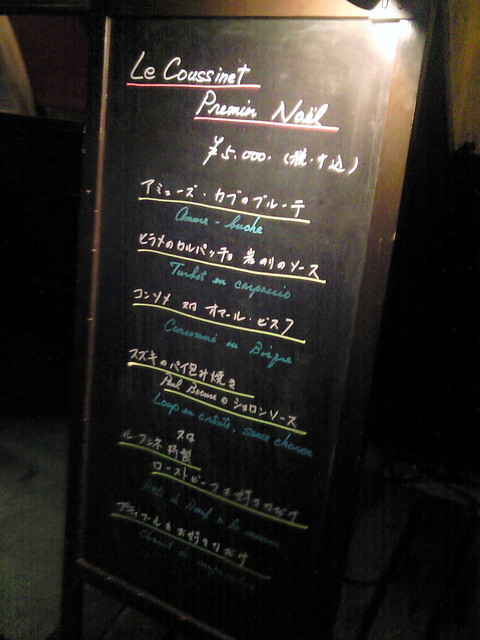 Le Coussinet
Premier Noël
¥5.000.(税・サ込)
アミューズ・カブのブルーテ
Amuse-buche
ヒラメのカルパッチョ 岩のりのソース
Turbot en carpaccio
コンソメ 又ハ オマール・ビスク
Consommé ou Bisque
スズキのパイ包み焼き
Paul Bocuse のショロンソース
Loup en croûte, sauce choron
又ハ
特製
ローストビーフをお好きなだけ
お好きなだけ